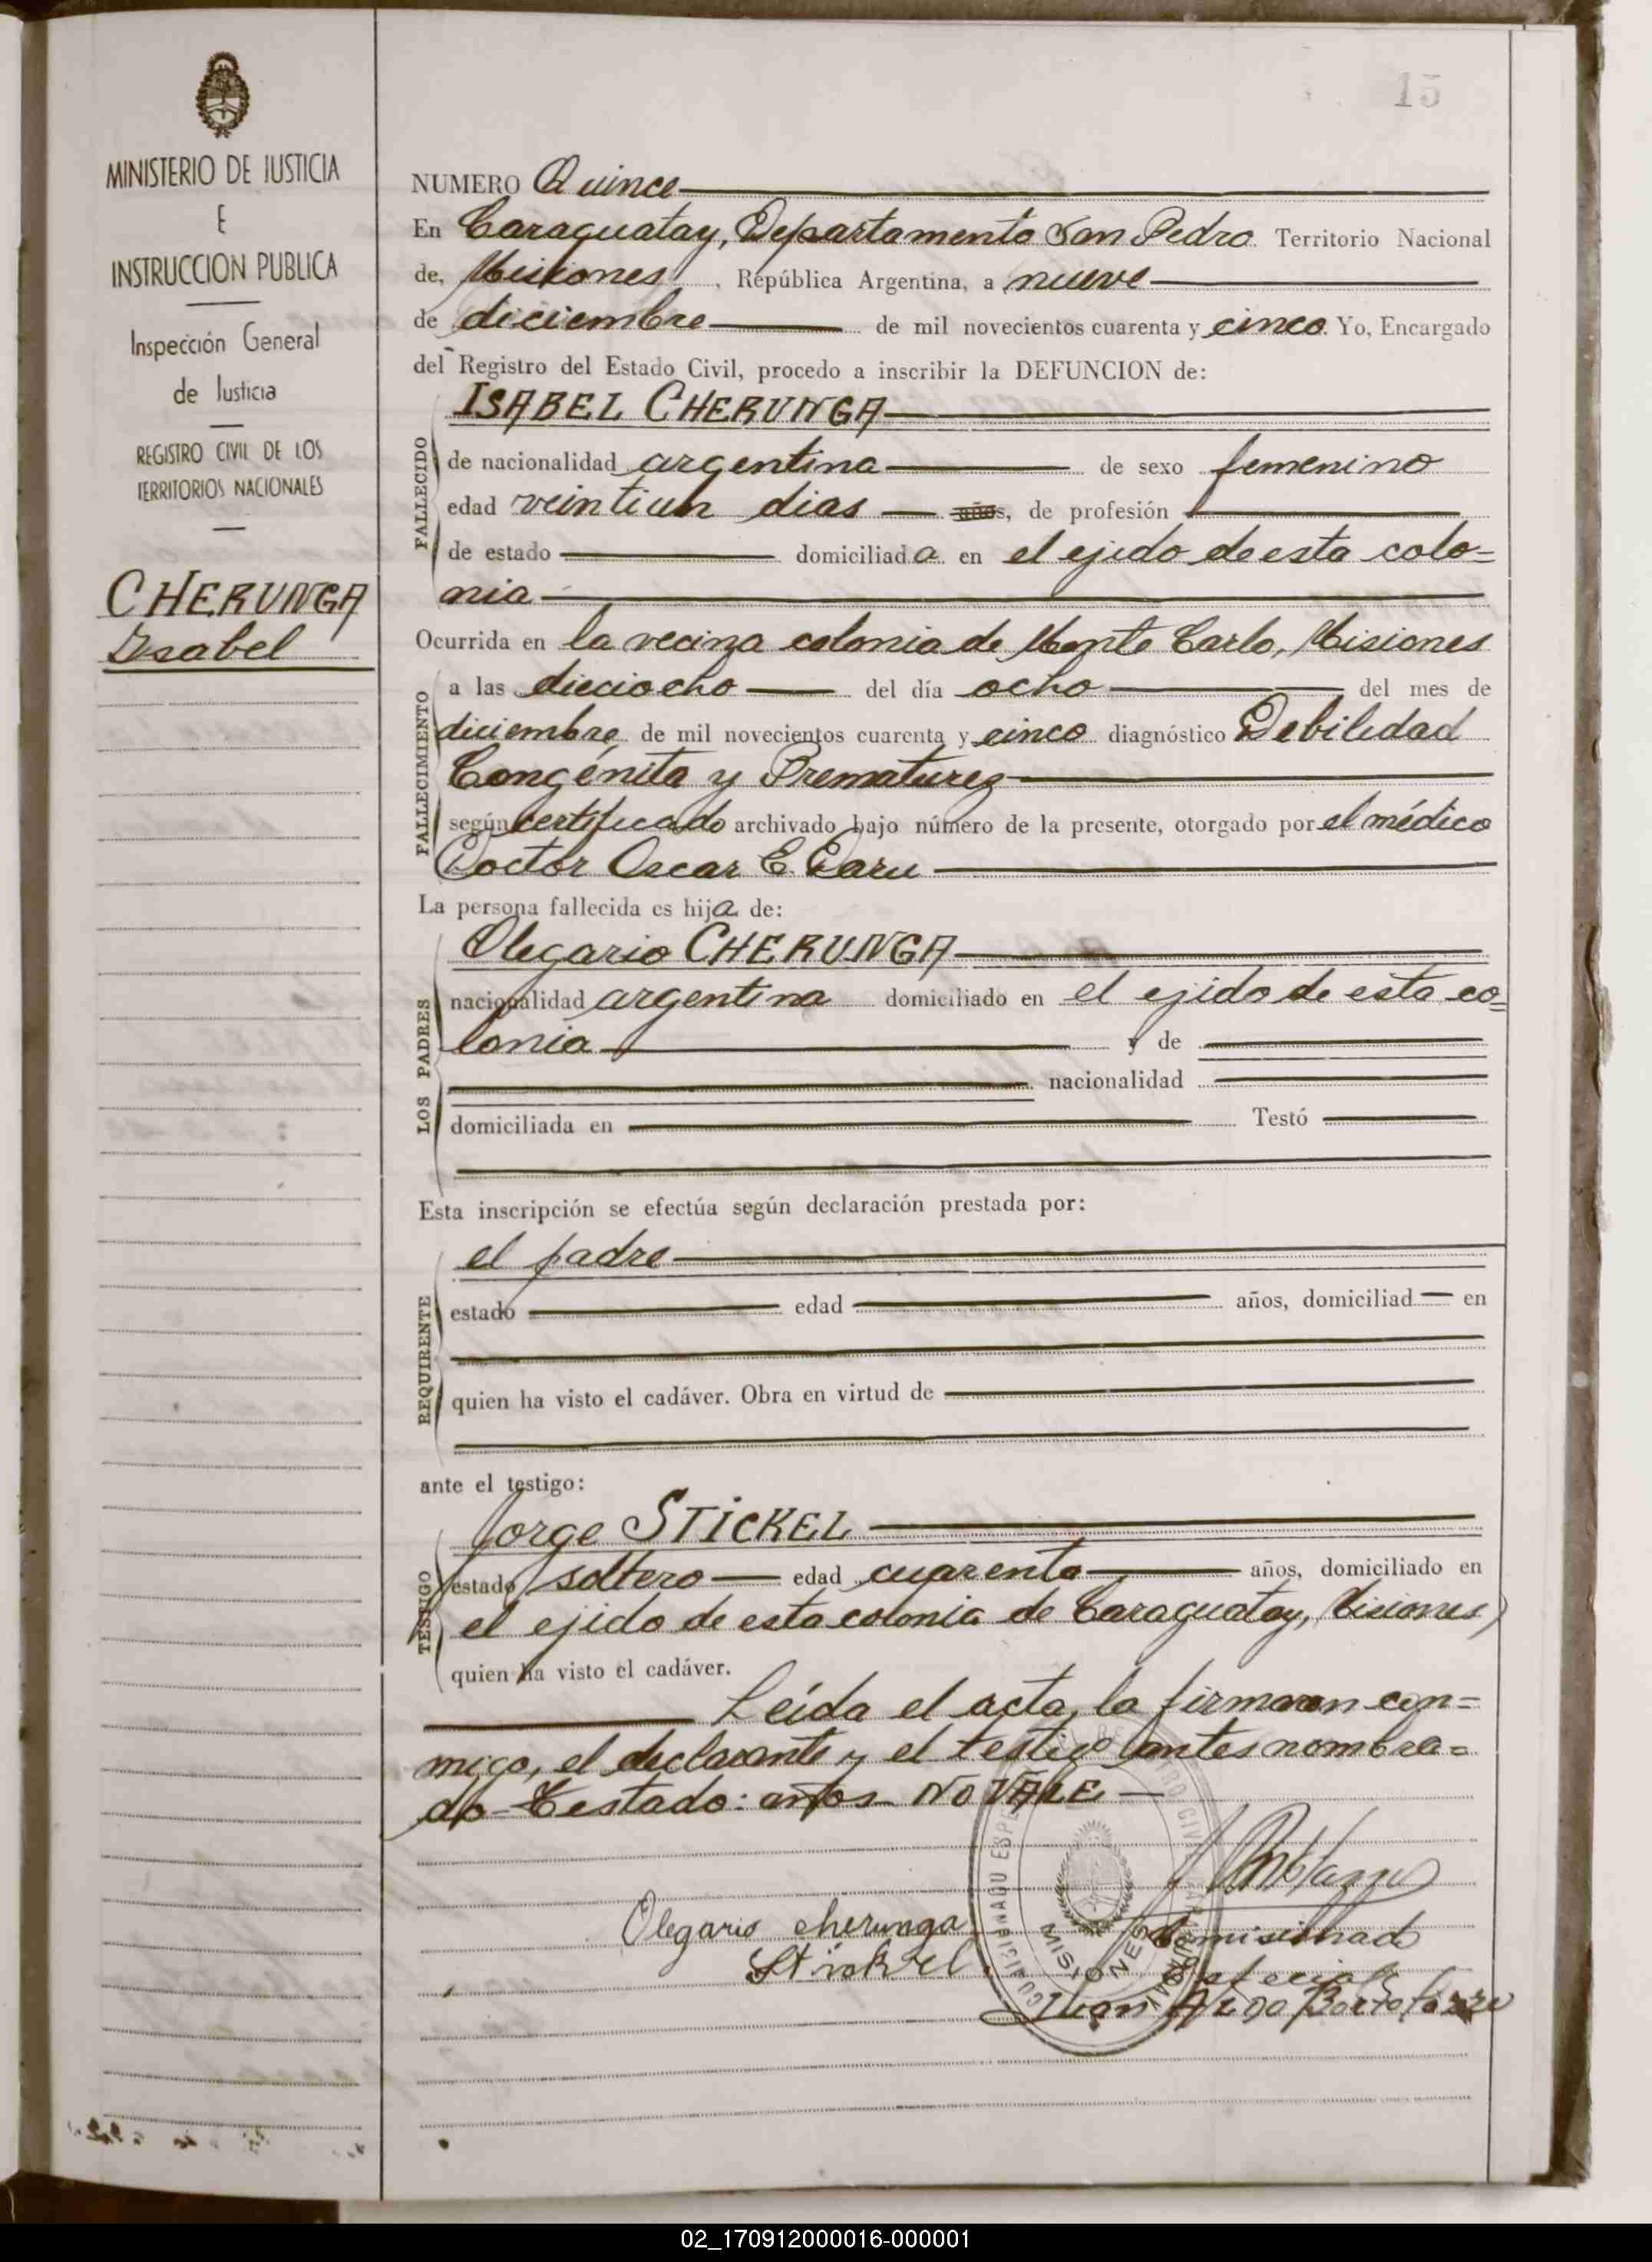 15
MINISTERIO DE JUSTICIA
E
INSTRUCCION PUBLICA
Inspección General
de Justicia
REGISTRO CIVIL DE LOS
TERRITORIOS NACIONALES
CHERUNGA
Isabel
NUMERO Quince
En Caraguatay, Departamento San Pedro Territorio Nacional
de, Misiones, República Argentina, a nueve
de diciembre de mil novecientos cuarenta y cinco. Yo, Encargado
del Registro del Estado Civil, procedo a inscribir la DEFUNCION de:
ISABEL CHERUNGA
FALLECIDO
de nacionalidad argentina de sexo femenino
edad veintiun dias años, de profesión
de estado domiciliada en el ejido de esta colo=
nia
Ocurrida en la vecina colonia de Monte Carlo, Misiones
FALLECIMIENTO
a las dieciocho del día ocho del mes de
diciembre de mil novecientos cuarenta y cinco diagnóstico Debilidad
Congénita y Prematurez
según certificado archivado bajo número de la presente, otorgado por el médico
Doctor Oscar E. Daru
La persona fallecida es hija de:
Olegario CHERUNGA
LOS PADRES
nacionalidad argentina domiciliado en el ejido de esta co=
lonia y de
nacionalidad
domiciliada en Testó
Esta inscripción se efectúa según declaración prestada por:
el padre
REQUIRENTE
estado edad años, domiciliad en
quien ha visto el cadáver. Obra en virtud de
ante el testigo:
Jorge STICKEL
TESTIGO
estado soltero edad cuarenta años, domiciliado en
el ejido de esta colonia de Caraguatay, Misiones,
quien ha visto el cadáver.
Leída el acta, la firmaron con=
migo, el declarante y el testigo antes nombra=
do- Testado: años NO VALE
Olegario cherunga
Stickel
Comisionado
Especial
Juan
MISIONES
02_170912000016-000001